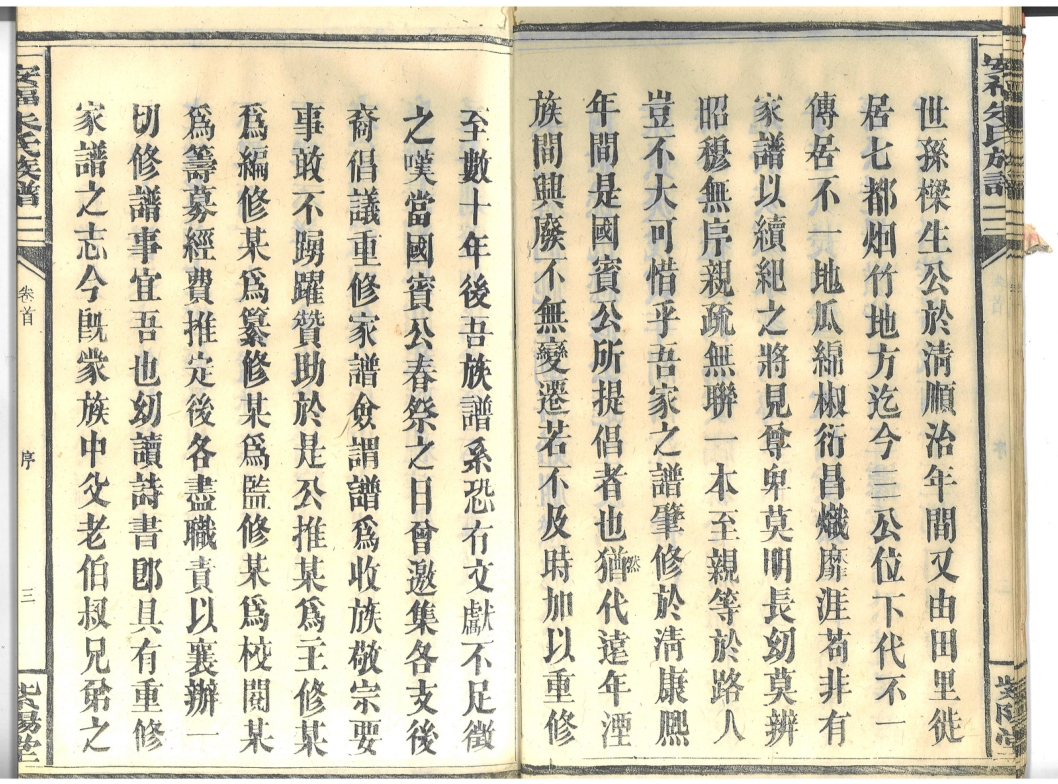 安福朱氏族譜
世孫樑生公於清順治年間又由田里徙
居七都炯竹地方迄今三公位下代不一
傳居不一地瓜綿椒衍昌熾靡涯苟非有
家譜以續紀之將見尊卑莫明長幼莫辨
昭穆無序親疏無聯一本至親等於路人
豈不大可惜乎吾家之譜肇修於清康熙
年間是國賓公所提倡者也猶然代遠年湮
族間興廢不無變遷若不及時加以重修
至數十年後吾族譜系恐有文獻不足徵
之嘆當國賓公春祭之日曾邀集各支後
裔倡議重修家譜僉謂譜爲收族敬宗要
事敢不踴躍贊助於是公推某爲主修某
爲編修某爲纂修某爲監修某爲校閱某
爲籌募經費推定後各盡職責以襄辦一
切修譜事宜吾也幼讀詩書卽具有重修
家譜之志今旣蒙族中父老伯叔兄弟之
安福朱氏族譜
卷首
序
三
紫陽堂